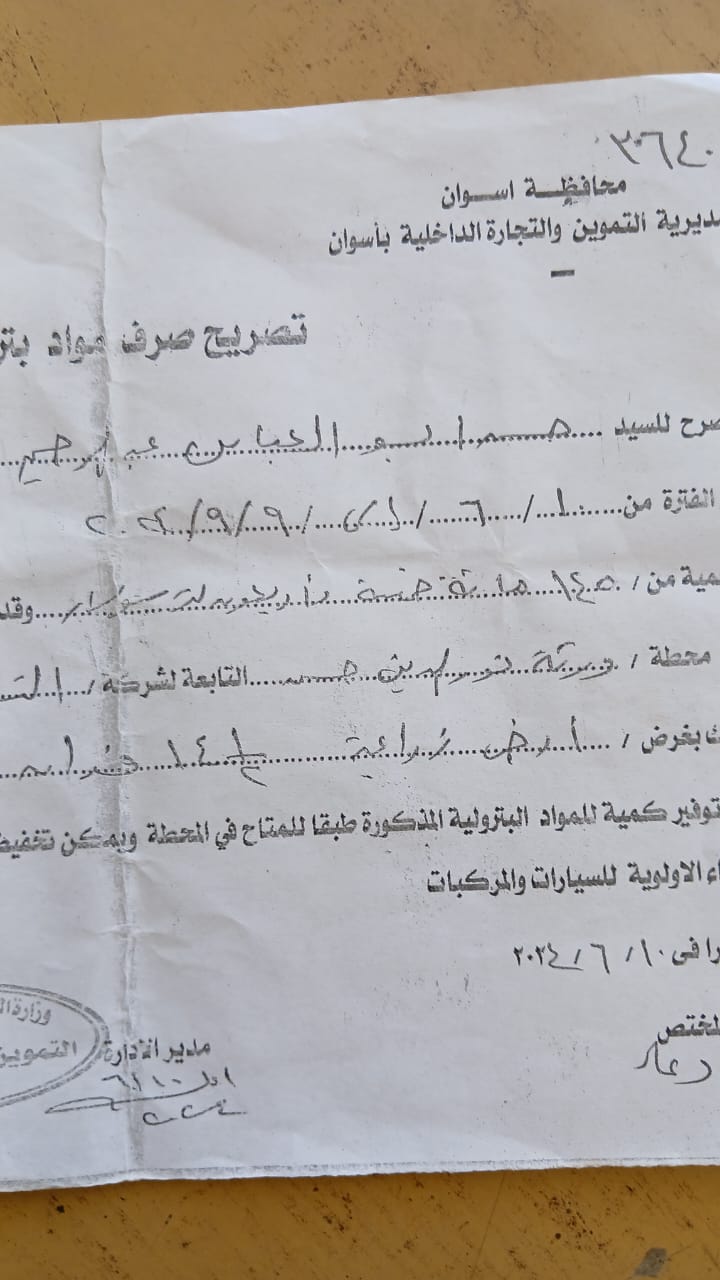 ٣٠٦٤٠
محافظة اسوان
مديرية التموين والتجارة الداخلية بأسوان
تصريح صرف مواد بتر
صرح للسيد / حسن ابو العباس عبد الرحيم
الفترة من ١٠ / ٦ / إلى ٩ / ٩ / ٢٠٢٤
مية من / ١٤٥ مائة خمسة وأربعون لتر سولار وقد
محطة / ورثة نور الدين حسن التابعة لشركة /
ك بغرض / أرض زراعية
توفير كمية للمواد البترولية المذكورة طبقا للمتاح في المحطة ويمكن تخفيض
اء الاولوية للسيارات والمركبات
را فى ١٠ / ٦ / ٢٠٢٤
لمختص
دعاء
مدير الادارة
وزارة ال
التموين